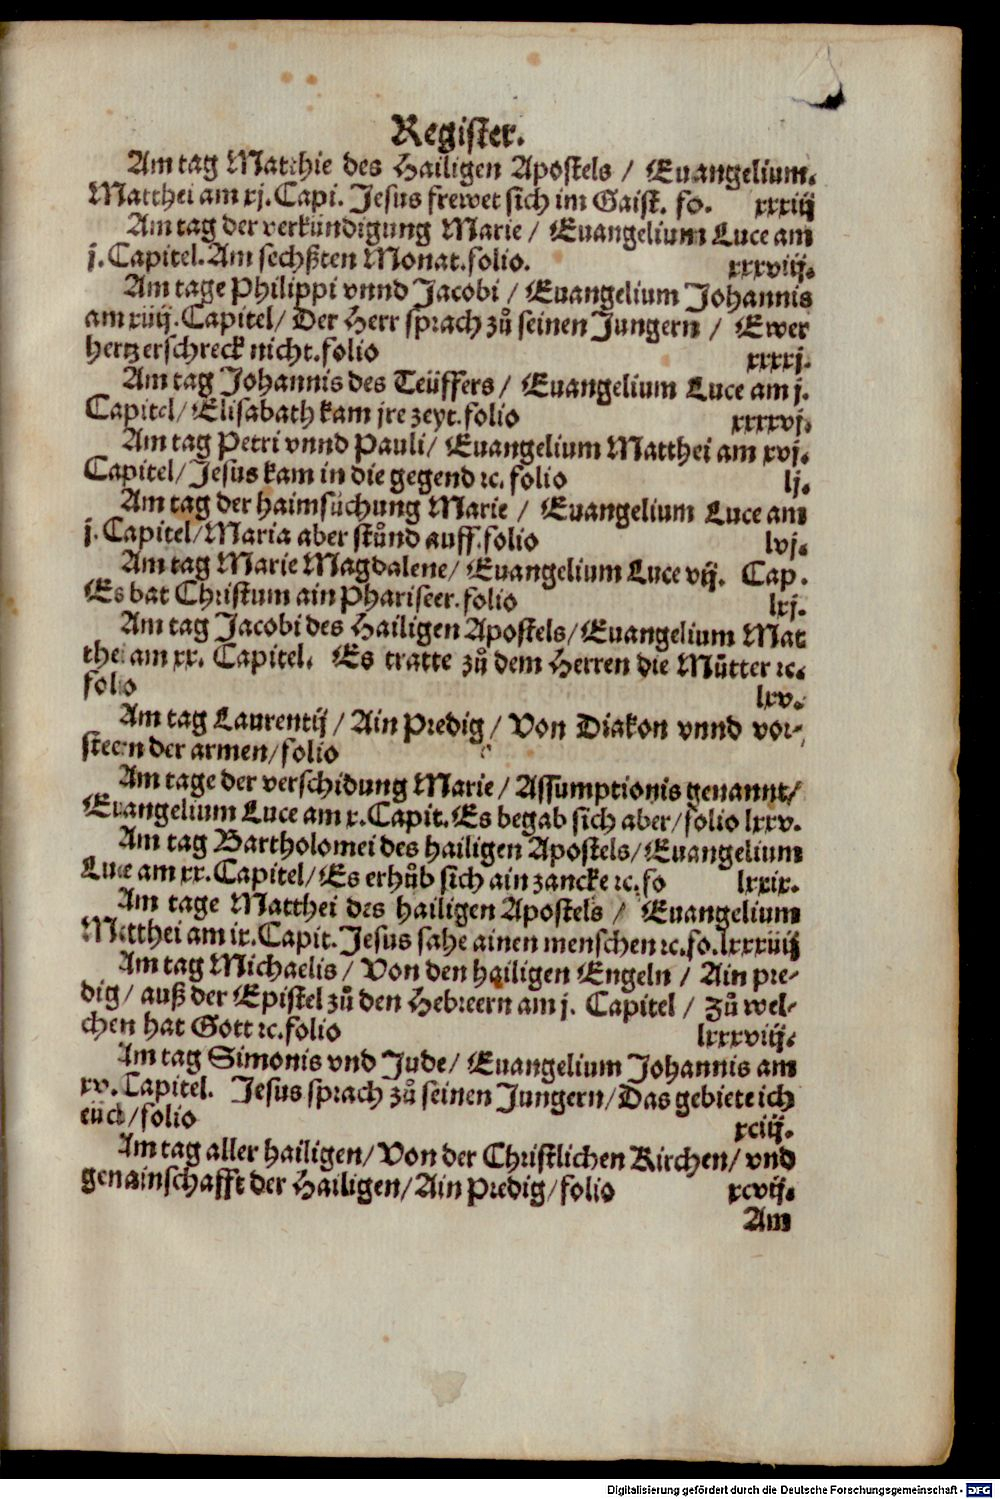 Register.
Am tag Matthie des Hailigen Apostels / Euangelium.
Matthei am xj. Capi. Jesus frewet sich im Gaist. fo. xxxiij
Am tag der verkündigung Marie / Euangelium Luce am
j. Capitel. Am sechßten Monat. folio. xxxviij.
Am tage Philippi vnnd Jacobi / Euangelium Johannis
am xiiij. Capitel / Der Herr sprach zů seinen Jungern / Ewer
hertz erschreck nicht. folio xxxxj.
Am tag Johannis des Teüffers / Euangelium Luce am j.
Capitel / Elisabath kam jre zeyt. folio xxxxvj.
Am tag Petri vnnd Pauli / Euangelium Matthei am xvj.
Capitel / Jesus kam in die gegend ꝛc. folio lj.
Am tag der haimsůchung Marie / Euangelium Luce am
j. Capitel / Maria aber stůnd auff. folio lvj.
Am tag Marie Magdalene / Euangelium Luce vij. Cap.
Es bat Christum ain Phariseer. folio lxj.
Am tag Jacobi des Hailigen Apostels / Euangelium Mat
thei am xx. Capitel. Es tratte zů dem Herren die Můtter ꝛc.
folio lxv.
Am tag Laurentij / Ain Predig / Von Diakon vnnd vor-
steern der armen / folio
Am tage der verschidung Marie / Assumptionis genannt /
Euangelium Luce am x. Capit. Es begab sich aber / folio lxxv.
Am tag Bartholomei des hailigen Apostels / Euangelium
Luce am xx. Capitel / Es erhůb sich ain zancke ꝛc. fo lxxix.
Am tage Matthei des hailigen Apostels / Euangelium
Matthei am ix. Capit. Jesus sahe ainen menschen ꝛc. fo. lxxxiiij
Am tag Michaelis / Von den hailigen Engeln / Ain pre-
dig / auß der Epistel zů den Hebreern am j. Capitel / Zů wel-
chen hat Gott ꝛc. folio lxxxviij.
Am tag Simonis vnd Jude / Euangelium Johannis am
xv. Capitel. Jesus sprach zů seinen Jungern / Das gebiete ich
eüch / folio xciij.
Am tag aller hailigen / Von der Christlichen Kirchen / vnd
gemainschafft der Hailigen / Ain Predig / folio xcvij.
Am
Digitalisierung gefördert durch die Deutsche Forschungsgemeinschaft - DFG